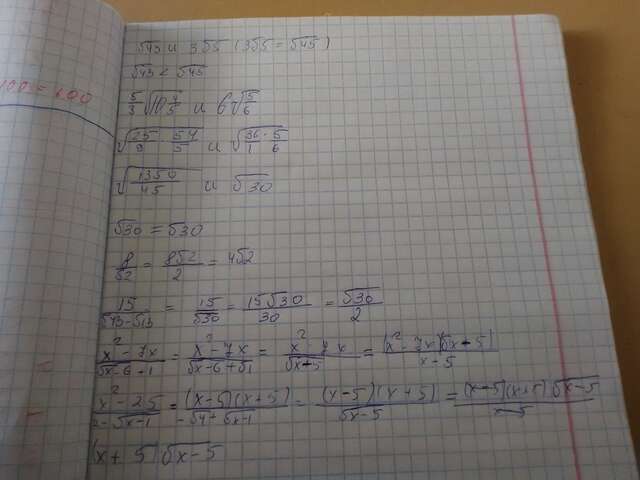 √43 и 3√5 (3√5 = √45)
√43 < √45
5/3 √(10 4/5) и 6√(5/6)
100 = 600
√(25/9 · 54/5) и √(36/1 · 5/6)
√(1350/45) и √30
√30 = √30
8/√2 = 8√2/2 = 4√2
15/(√43-√13) = 15/√30 = 15√30/30 = √30/2
(x² - 7x)/(√x-6+1) = (x² - 7x)/(√x-6+√1) = (x² - 7x)/(√x+5) = (x² - 7x)(√x+5)/(x-5)
(x² - 25)/(2-√x-1) = (x-5)(x+5)/(-√4+√x-1) = (x-5)(x+5)/(√x-5) = (x-5)(x+5)√x-5/(x-5)
(x+5)√x-5